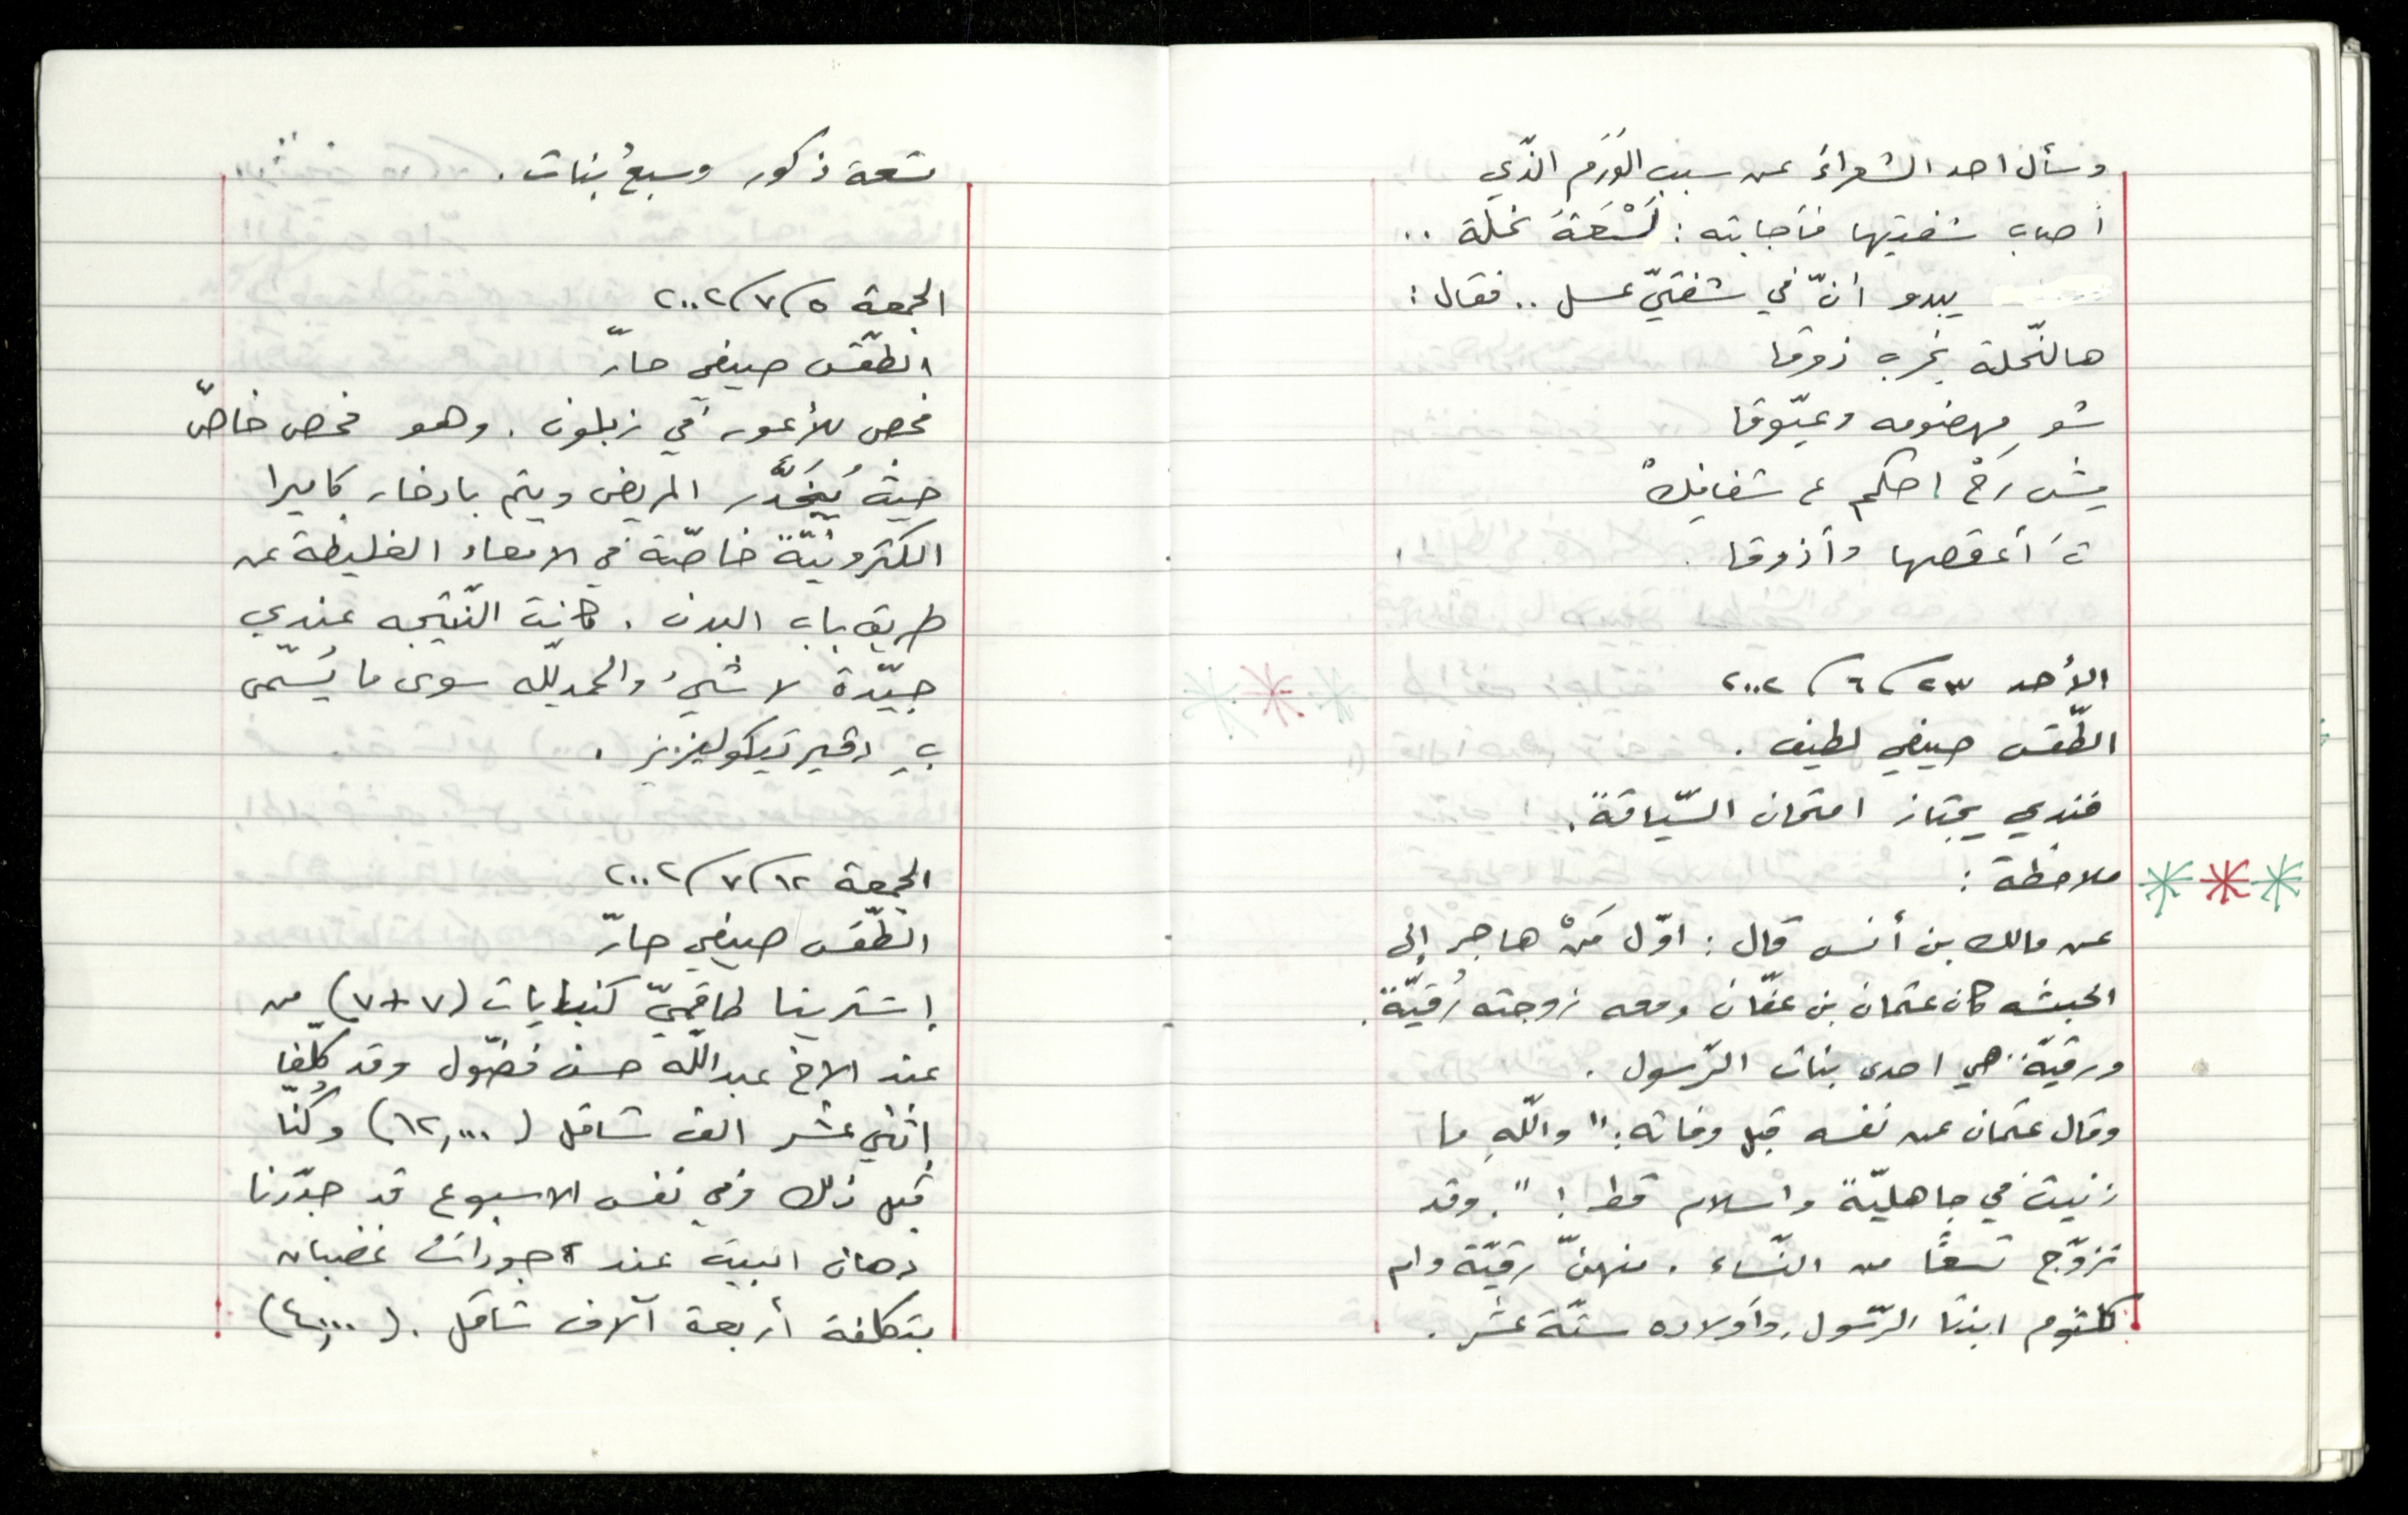 وسأل احد الشعراءُ عن سبب الوَرَم الذّي
أصاب شفتيها فأجابته: لَسْعَةُ نحلة ..
يبدو انّ في شفتيّ عسل .. فقال:
هالنّحلة بخرب ذوقها
شو مهضومه وعيّوقا
مِش رَحْ احكم ع شفافِكْ
تَ أعقصها وأذوقها.
الأحد ٢٣/٦/٢٠٠٢
الطّقس صيفي لطيف.
فندي يجتاز امتحان السّياقة.
ملاحظة:
عن مالك بن أنس قال: اوّل مَنْ هاجر إلى
الحبشه كان عثمان بن عفّان ومعه زوجته رُقيّة.
ورقيّة هي احدى بنات الرّسول.
وقال عثمان عن نفسه قبل وفاته: "واللّهِ ما
زنيت في جاهليّة واسلام قط!". وقد
تزوّج تسعًا من النّساء. منهنّ رقيّة وام
كلثوم ابنتا الرّسول. وأولاده ستّة عشر.
تسعة ذكور وسبعُ بنات.
الجمعة ٥/٧/٢٠٠٢
الطّقس صيفي حارّ
فحص للأعور في زبلون. وهو فحص خاصّ
حيثُ يُخَدَّر المريض ويتم بادخار كاميرا
الكترونيّة خاصّة في الامعاء الغليظة عن
طريق باب البدن. كانت النّتيجه عندي
جيّدة لا شيءُ والحمد للّه سوى ما يُسمّى
بِ دڤيرتيكوليزيز.
الجمعة ١٢/٧/٢٠٠٢
الطّقس صيفي حارّ
إشترينا طاقميّ كنبايات (٧+٧) من
عند الاخ عبد اللّه حسن فضّول وقد كلّفا
اثني عشر الف شاقل (١٢,٠٠٠) وكُنّا
قبل ذلك وفي نفس الاسبوع قد جدّدنا
دهان البيت عند جودات غضبان
بتكلفة أربعة آلاف شاقل. (٤,٠٠٠)